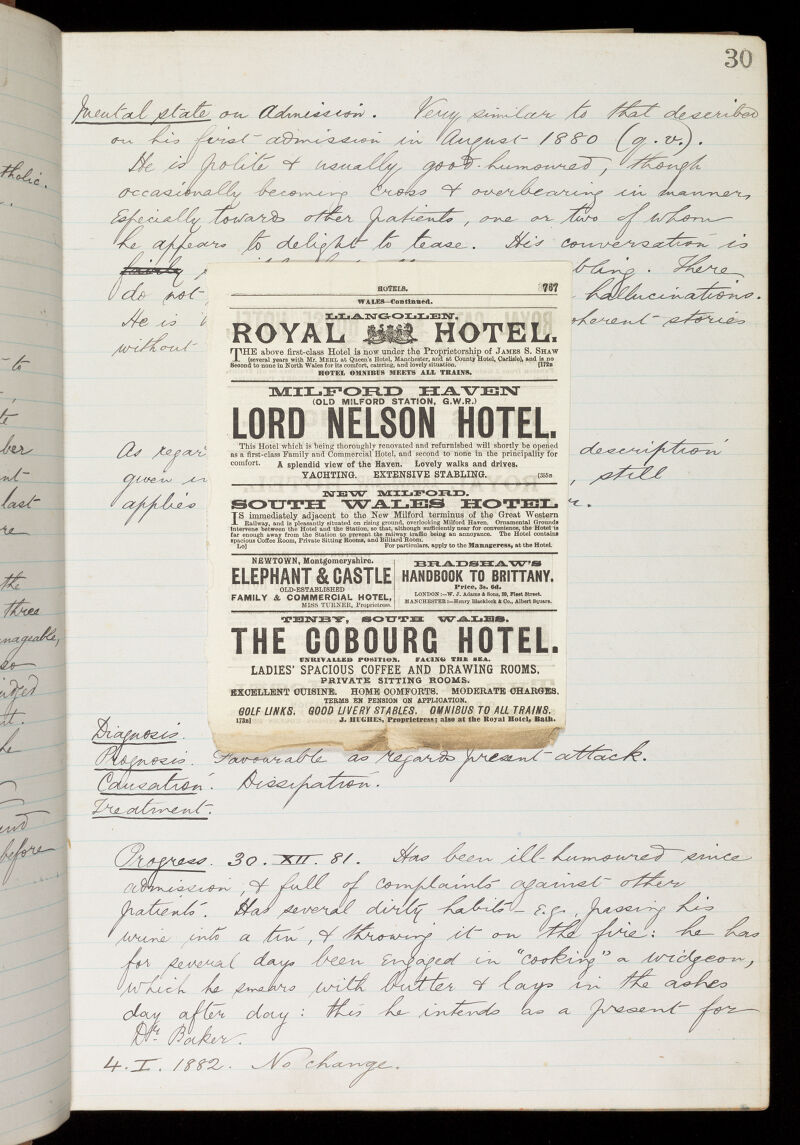 30
Mental state on Admission. Very similar to that described
on his first admission in August 1880 (q.v.).
He is polite & usually good-humoured, though
occasionally becoming cross & overbearing in manner,
especially towards other patients, one or two of whom
he appears to delight to tease. His conversation is
fairly bling. There
do not hallucinations.
He is oherent stories
without
As regar description
given in , still
applies
HOTELS. 767
WALES—Continued.
LLANGOLLEN.
ROYAL HOTEL.
THE above first-class Hotel is now under the Proprietorship of JAMES S. SHAW
(several years with Mr. MEHL at Queen's Hotel, Manchester, and at County Hotel, Carlisle), and is no
Second to none in North Wales for its comfort, catering, and lovely situation. [172n
HOTEL OMNIBUS MEETS ALL TRAINS.
MILFORD HAVEN
(OLD MILFORD STATION, G.W.R.)
LORD NELSON HOTEL.
This Hotel which is being thoroughly renovated and refurnished will shortly be opened
as a first-class Family and Commercial Hotel, and second to none in the principality for
comfort. A splendid view of the Haven. Lovely walks and drives.
YACHTING. EXTENSIVE STABLING.
NEW MILFORD.
SOUTH WALES HOTEL
IS immediately adjacent to the New Milford terminus of the Great Western
Railway, and is pleasantly situated on rising ground, overlooking Milford Haven. Ornamental Grounds
intervene between the Hotel and the Station, so that, although sufficiently near for convenience, the Hotel is
far enough away from the Station to prevent the railway traffic being an annoyance. The Hotel contains
spacious Coffee Room, Private Sitting Rooms, and Billiard Room.
For particulars, apply to the Manageress, at the Hotel.
NEWTOWN, Montgomeryshire.
ELEPHANT & CASTLE
OLD-ESTABLISHED
FAMILY & COMMERCIAL HOTEL,
MISS TURNER, Proprietress.
BRADSHAW'S
HANDBOOK TO BRITTANY.
Price, 3s. 6d.
LONDON:—W. J. Adams & Sons, 59, Fleet Street.
MANCHESTER:—Henry Blacklock & Co., Albert Square.
TENBY, SOUTH WALES.
THE COBOURG HOTEL.
UNRIVALLED POSITION. FACING THE SEA.
LADIES' SPACIOUS COFFEE AND DRAWING ROOMS,
PRIVATE SITTING ROOMS.
EXCELLENT CUISINE. HOME COMFORTS. MODERATE CHARGES.
TERMS EN PENSION ON APPLICATION.
GOLF LINKS. GOOD LIVERY STABLES. OMNIBUS TO ALL TRAINS.
173n] J. HUGHES, Proprietress; also at the Royal Hotel, Bath.
Diagnosis.
Prognosis. Favourable as regards present attack.
Causation. Dissipation.
Treatment.
Progress. 30. XII. 81. Has been ill-humoured since
admission, & full of complaints against other
patients. Has several dirty habits – e.g., passing his
urine into a tin, & throwing it on the fire: he has
for several days been engaged in "cooking" a widgeon,
which he smears with butter & lays in the ashes
day after day: this he intends as a present for
Dr. Baker.
4. I. 1882. No change.
tholic.
to
te
ber
nt-
last
re
the
three
nageable,
so
udged
t.
he
and
before